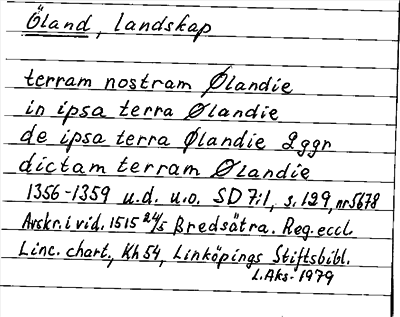 Öland, landskap
terram nostram Ølandie
in ipsa terra Ølandie
de ipsa terra Ølandie 2ggr
dictam terram Ølandie
1356-1359 u.d. u.o. SD 7:1, s. 129, nr 5678
Avskr. i vid. 1515 24/5 Bredsätra. Reg. eccl.
Linc. chart., Kh 54, Linköpings Stiftsbibl.
L. Aks- 1979